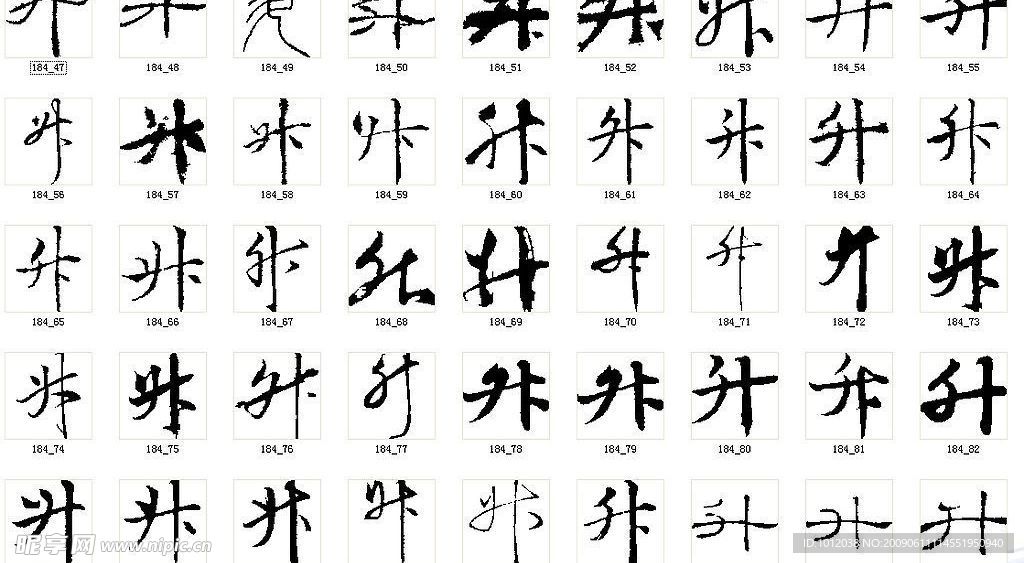 184_47 184_48 184_49 184_50 184_51 184_52 184_53 184_54 184_55
升 升 升 升 升 升 升 升 升
184_56 184_57 184_58 184_59 184_60 184_61 184_62 184_63 184_64
升 升 升 升 升 升 升 升 升
184_65 184_66 184_67 184_68 184_69 184_70 184_71 184_72 184_73
升 升 升 升 升 升 升 升 升
184_74 184_75 184_76 184_77 184_78 184_79 184_80 184_81 184_82
升 升 升 升 升 升 升 升 升
昵享网 www.nipic.cn
ID:1012038 NO:20090611114551950940